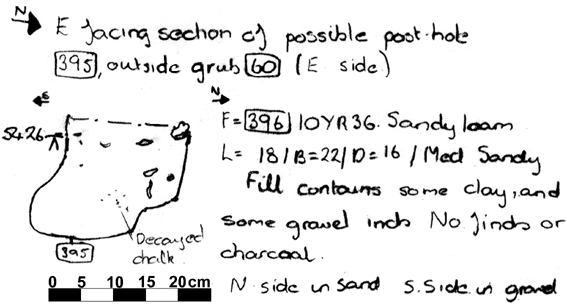 N
E facing section of possible post-hole
395, outside grub 60 (E side)
S
N
F= 396 10YR36. Sandy loam
5426
L= 18/B=22/D=16/Med Sandy
Fill contains some clay, and
some gravel incls No finds or
charcoal.
Decayed chalk.
395
N side in sand S. Side in gravel
0 5 10 15 20cm